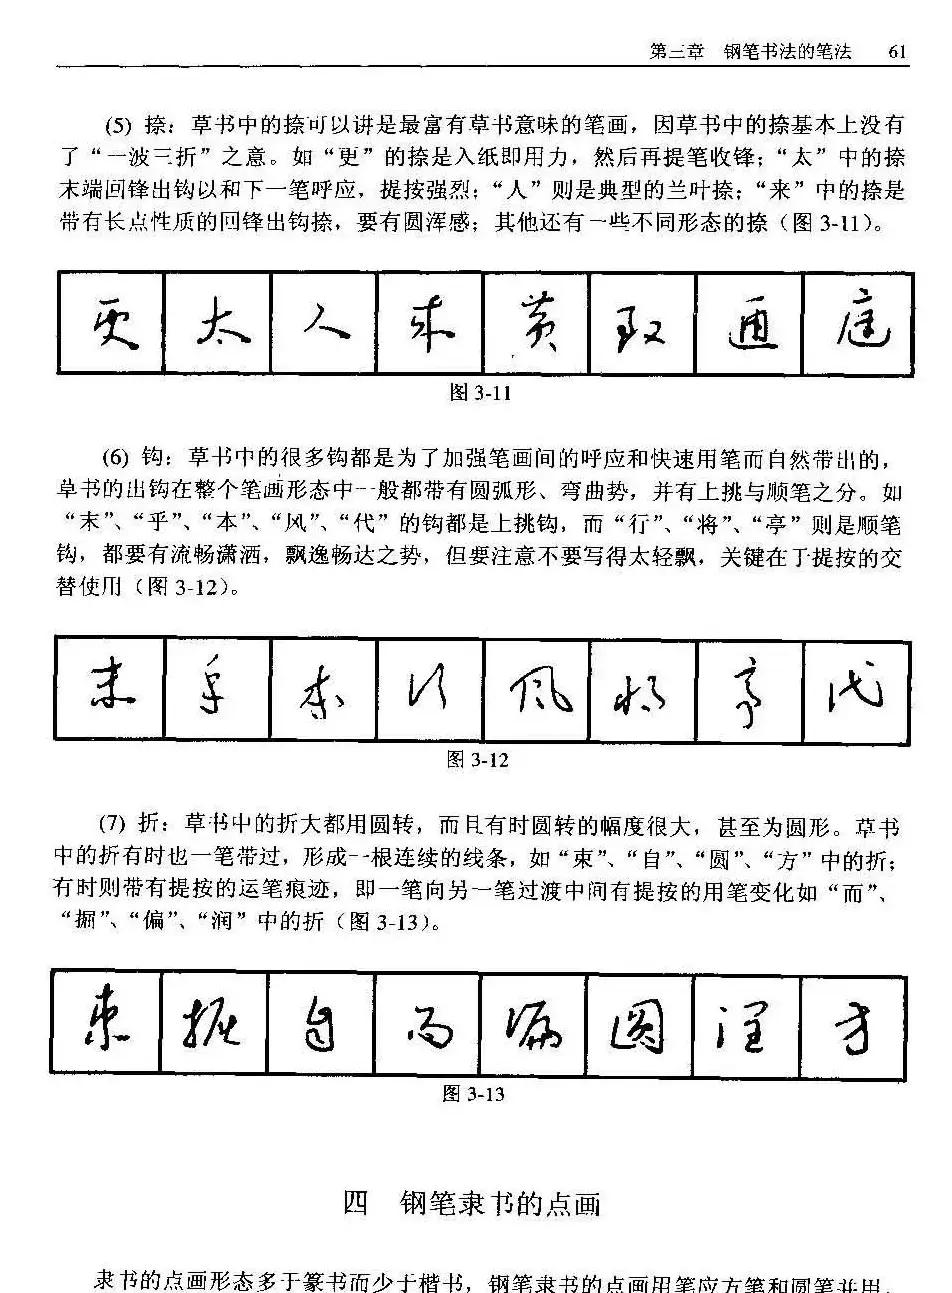 第三章 钢笔书法的笔法 61
(5) 捺：草书中的捺可以讲是最富有草书意味的笔画，因草书中的捺基本上没有
了“一波三折”之意。如“更”的捺是入纸即用力，然后再提笔收锋；“太”中的捺
末端回锋出钩以和下一笔呼应，提按强烈；“人”则是典型的兰叶捺；“来”中的捺是
带有长点性质的回锋出钩捺，要有圆浑感；其他还有一些不同形态的捺（图 3-11）。
更 太 人 来 黄 通 庭
图 3-11
(6) 钩：草书中的很多钩都是为了加强笔画间的呼应和快速用笔而自然带出的，
草书的出钩在整个笔画形态中一般都带有圆弧形、弯曲势，并有上挑与顺笔之分。如
“末”、“乎”、“本”、“风”、“代”的钩都是上挑钩，而“行”、“将”、“亭”则是顺笔
钩，都要有流畅潇洒，飘逸畅达之势，但要注意不要写得太轻飘，关键在于提按的交
替使用（图 3-12）。
末 乎 本 行 风 将 亭 代
图 3-12
(7) 折：草书中的折大都用圆转，而且有时圆转的幅度很大，甚至为圆形。草书
中的折有时也一笔带过，形成一根连续的线条，如“束”、“自”、“圆”、“方”中的折；
有时则带有提按的运笔痕迹，即一笔向另一笔过渡中间有提按的用笔变化如“而”、
“掘”、“偏”、“润”中的折（图 3-13）。
束 掘 自 而 偏 圆 润 方
图 3-13
四 钢笔隶书的点画
隶书的点画形态多于篆书而少于楷书，钢笔隶书的点画用笔应方笔和圆笔并用，